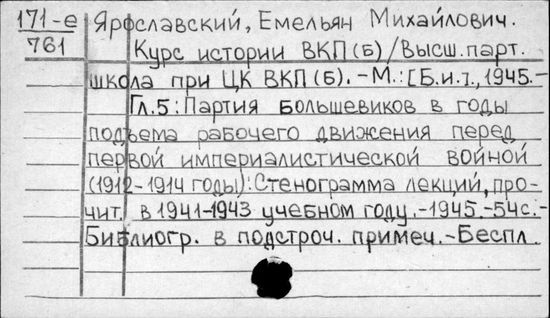 171-е Ярославский, Емельян Михайлович.
761 Курс истории ВКП(б)/Высш.парт.
школа при ЦК ВКП(б).-М.:[Б.и.],1945.-
Гл.5:Партия большевиков в годы
подъема рабочего движения перед
первой империалистической войной
(1912-1914 годы):Стенограмма лекций,про-
чит. в 1941-1943 учебном году.-1945.-54с.-
Библиогр. в подстроч. примеч.-Беспл.